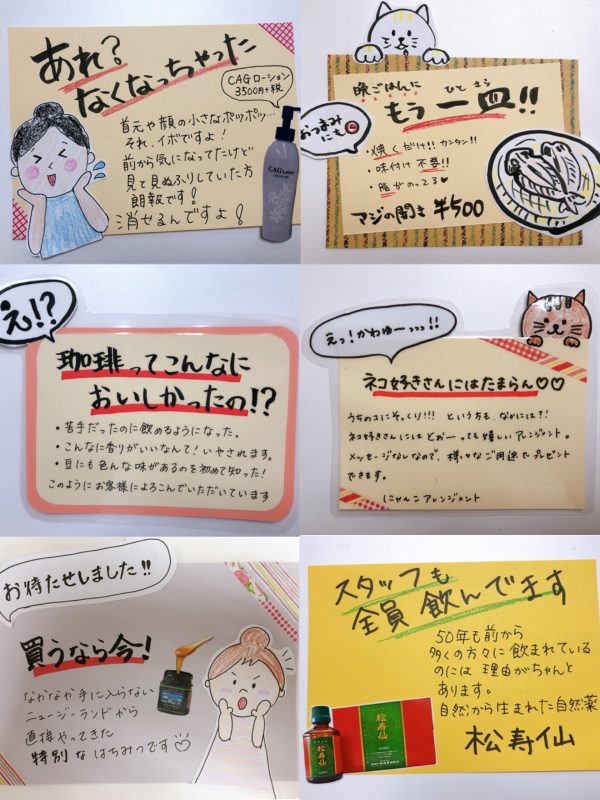 あれ?
なくなっちゃった
CAGローション
3500円+税
首元や顔の小さなポッポツ…
それ、イボですよ!
前から気になってたけど
見て見ぬふりしていた方
朗報です!
消せるんですよ!
晩ごはんに
もう一皿!!
ひとさら
おつまみ
にも
・焼くだけ!!カンタン!!
・味付け不要!!
・脂がのってる♥
アジの開き ¥500
え!?
珈琲ってこんなに
おいしかったの!?
・苦手だったのに飲めるようになった。
・こんなに香りがいいなんて!いやされます。
・豆にも色んな味があるのを初めて知った!
このようにお客様によろこんでいただいています
えっ!かわゆーぃぃぃ!!
ネコ好きさんにはたまらん♡♡
うちのコにそっくり!!! という方も、なかには?!
ネコ好きさんにはとおーっても嬉しいアレンジメント。
メッセージなしなので、様々なご用途でプレゼント
できます。
にゃんこアレンジメント
お待たせしました!!
買うなら今!
なかなか手に入らない
ニュージーランドから
直接やってきた
特別なはちみつです♡
スタッフも
全員飲んでます
50年も前から
多くの方々に飲まれている
のには理由がちゃんと
あります。
自然から生まれた自然薬
松寿仙
松寿仙
松寿仙